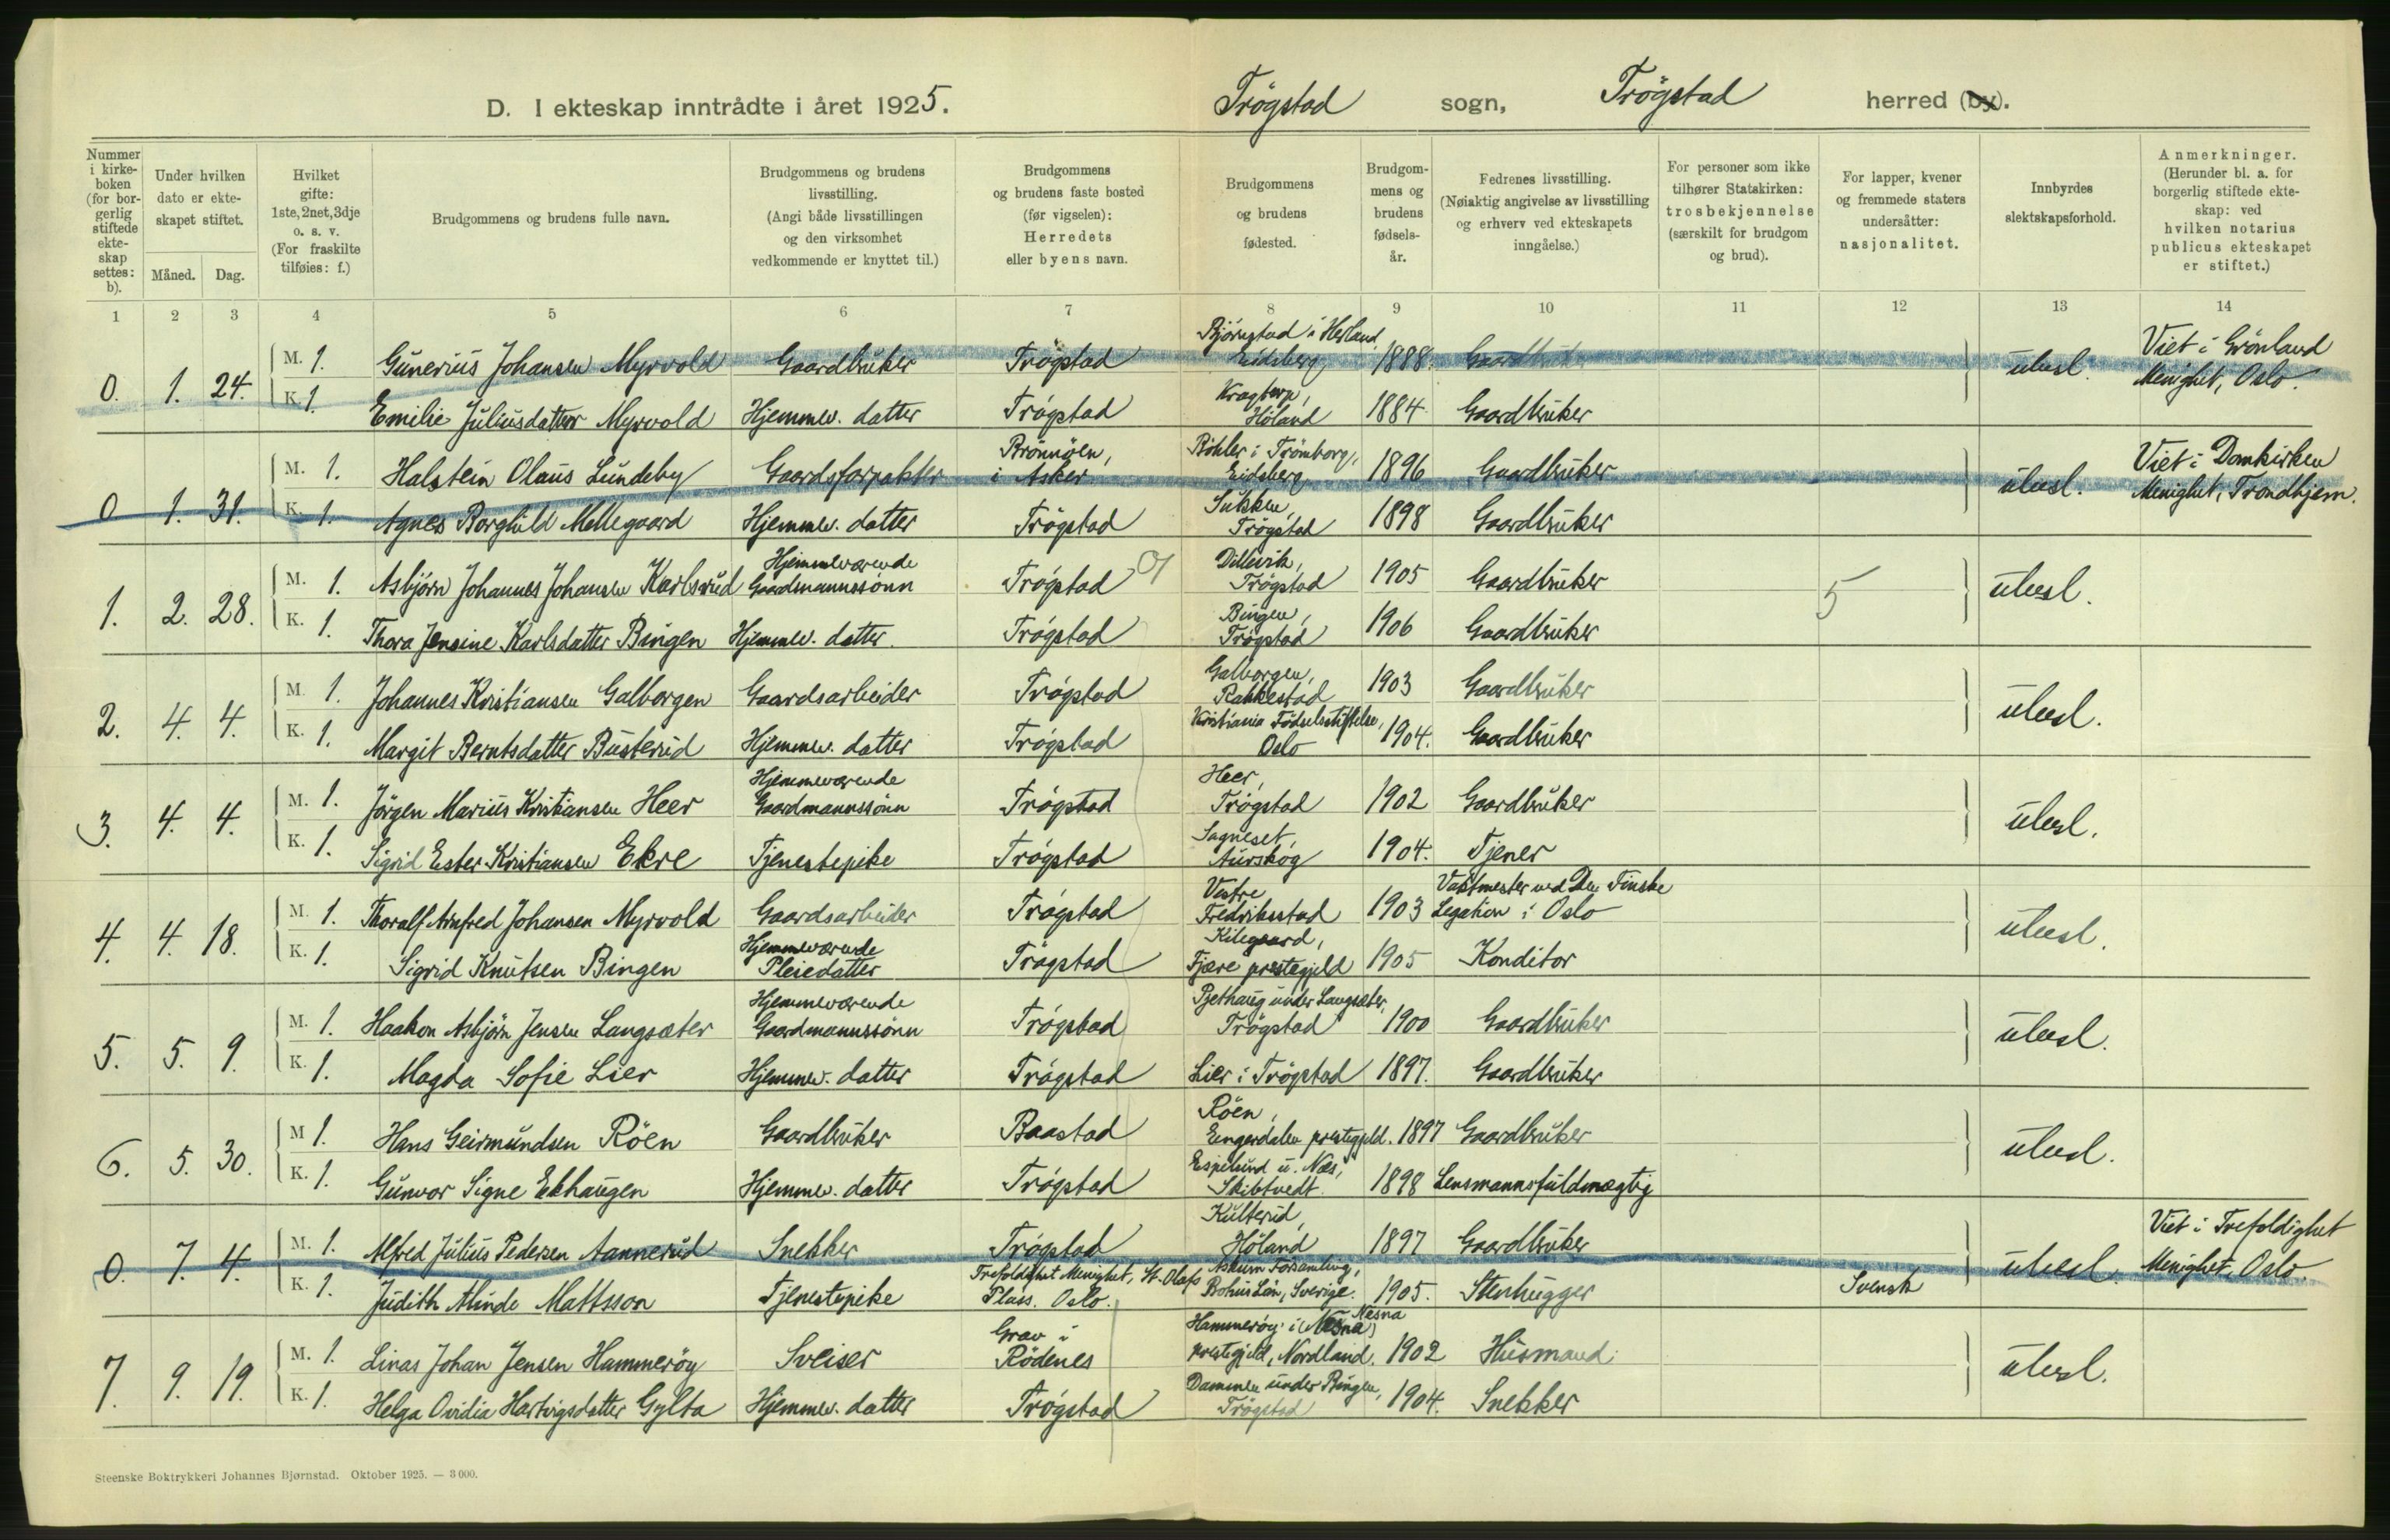 D. I ekteskap inntrådte i året 1925. Trögstad sogn, Trögstad herred (by).
Nummer i kirke-boken (for bor-gerlig stiftede ekte-skap settes: b).
Under hvilken dato er ekte-skapet stiftet.
Måned. Dag.
Hvilket gifte: 1ste, 2net, 3dje o. s. v. (For fraskilte tilføies: f.)
Brudgommens og brudens fulle navn.
Brudgommens og brudens livsstilling. (Angi både livsstillingen og den virksomhet vedkommende er knyttet til.)
Brudgommens og brudens faste bosted (før vigselen): Herredets eller byens navn.
Brudgommens og brudens fødested.
Brudgom-mens og brudens fødsels-år.
Fedrenes livsstilling. (Nøiaktig angivelse av livsstilling og erhverv ved ekteskapets inngåelse.)
For personer som ikke tilhører Statskirken: trosbekjennelse (særskilt for brudgom og brud).
For lapper, kvener og fremmede staters undersåtter: nasjonalitet.
Innbyrdes slektskapsforhold.
Anmerkninger. (Herunder bl. a. for borgerlig stiftede ekte-skap: ved hvilken notarius publicus ekteskapet er stiftet.)
1 2 3 4 5 6 7 8 9 10 11 12 13 14
0. 1. 24. M. 1. Gunerius Johansen Myrvold Gaardbruker Trögstad Björngstad i Herland, Eidsberg 1888. Gaardbruker ubesl. Viet i Grönland Menighet, Oslo.
K. 1. Emilie Juliusdatter Myrvold Hjemmev. datter Trögstad Kragtorp, Höland 1884. Gaardbruker
0 1. 31. M. 1. Halstein Olaus Lundeby Gaardsforpakter Brönnöen, i Asker Böhler i Trömborg, Eidsberg 1896 Gaardbruker ubesl. Viet i Domkirken Menighet, Trondhjem.
K. 1. Agnes Borghild Mellegaard Hjemmev. datter Trögstad Sukken, Trögstad 1898 Gaardbruker
1. 2. 28. M. 1. Asbjörn Johannes Johansen Karlsrud Hjemmeværende Gaardmannssönn Trögstad Dillevik, Trögstad 1905 Gaardbruker 5 ubesl.
K. 1. Thora Jensine Karlsdatter Bingen Hjemmev. datter. Trögstad Bingen, Trögstad 1906 Gaardbruker
2. 4. 4. M. 1. Johannes Kristiansen Galborgen Gaardsarbeider Trögstad Galborgen, Rakkestad 1903 Gaardbruker ubesl.
K. 1. Margit Berntsdatter Busterud Hjemmev. datter Trögstad Kristiania Födselsstiftelse, Oslo 1904. Gaardbruker
3. 4. 4. M. 1. Jörgen Marius Kristiansen Heer Hjemmeværende Gaardmannssönn Trögstad Heer, Trögstad 1902 Gaardbruker ubesl.
K. 1. Sigrid Ester Kristiansen Ekre Tjenestepike Trögstad Sagneset, Aurskog 1904. Tjener
4. 4. 18. M. 1. Thoralf Arnfred Johansen Myrvold Gaardsarbeider Trögstad Vestre Fredriksstad 1903 Vaktmester ved Den Finske Legation i Oslo ubesl.
K. 1. Sigrid Knutsen Bingen Hjemmeværende Pleiedatter Trögstad Kilegaard, Fjære prestegjeld 1905 Konditor
5. 5. 9. M. 1. Haakon Asbjörn Jensen Langsæter Hjemmeværende Gaardmannssönn Trögstad under Langsæter, Trögstad 1900 Gaardbruker ubesl.
K. 1. Magda Sofie Lier Hjemmev. datter Trögstad Lier i Trögstad 1897. Gaardbruker
6. 5. 30. M 1. Hans Geirmundsen Röen Gaardbruker Baastad Röen, Engerdalen prestegjeld. 1897 Gaardbruker ubesl.
K. 1. Gunvor Signe Ekhaugen Hjemmev. datter Trögstad Espelund u. Næs, Skibtvedt. 1898 Lensmannsfuldmægtig
0. 7. 4. M. 1. Alfred Julius Pedersen Aannerud Snekker Trögstad Kulterud, Höland 1897 Gaardbruker ubesl. Viet i Trefoldighet Menighet, Oslo.
K. 1. Judith Alinde Mattsson Tjenestepike Trefoldighet Menighet, St. Olafs Plass. Oslo. Askum Församling, Bohus Län, Sverige. 1905. Stenhugger Svensk
7. 9. 19. M. 1. Linas Johan Jensen Hammeröy Sveiser Grav i Rödenes Hammeröy i (Nesna) Nesna prestegjeld, Nordland. 1902 Husmand. ubesl.
K. 1. Helga Ovidia Hartvigsdatter Gylta Hjemmev. datter Trögstad Dammen under Bingen, Trögstad 1904. Snekker
Steenske Boktrykkeri Johannes Bjørnstad. Oktober 1925. — 3 000.